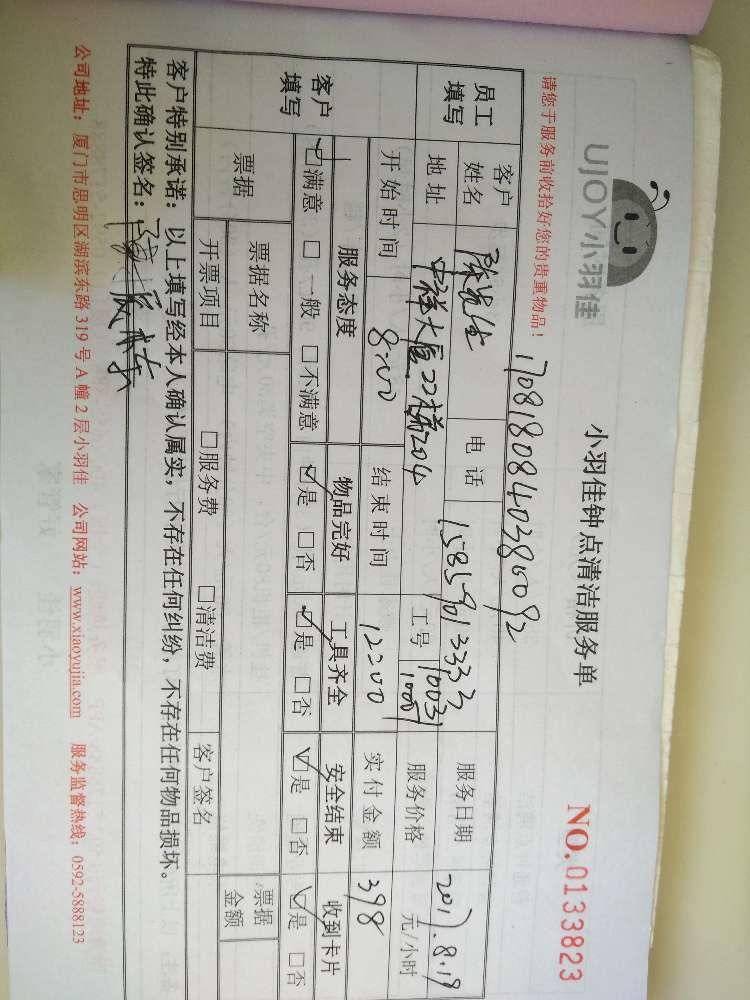 UJOY小羽佳
小羽佳钟点清洁服务单
NO.0133823
请您于服务前收拾好您的贵重物品！
1708180840380092
员工填写
客户姓名 陈先生 电话 15859013333 服务日期 2017.8.19
地址 中祥大厦22梯204 工号 10031 服务价格 元/小时
开始时间 8:00 结束时间 12:00 实付金额 398
客户填写
服务态度 物品完好 工具齐全 安全结束 收到卡片
☑满意 □一般 □不满意 ☑是 □否 ☑是 □否 ☑是 □否 ☑是 □否
票据 票据名称 票据金额
开票项目 □服务费 □清洁费 客户签名
客户特别承诺：以上填写经本人确认属实，不存在任何纠纷，不存在任何物品损坏。
特此确认签名：
公司地址：厦门市思明区湖滨东路 319 号 A 幢 2 层小羽佳 公司网站：www.xiaoyujia.com 服务监督热线：0592-5888123